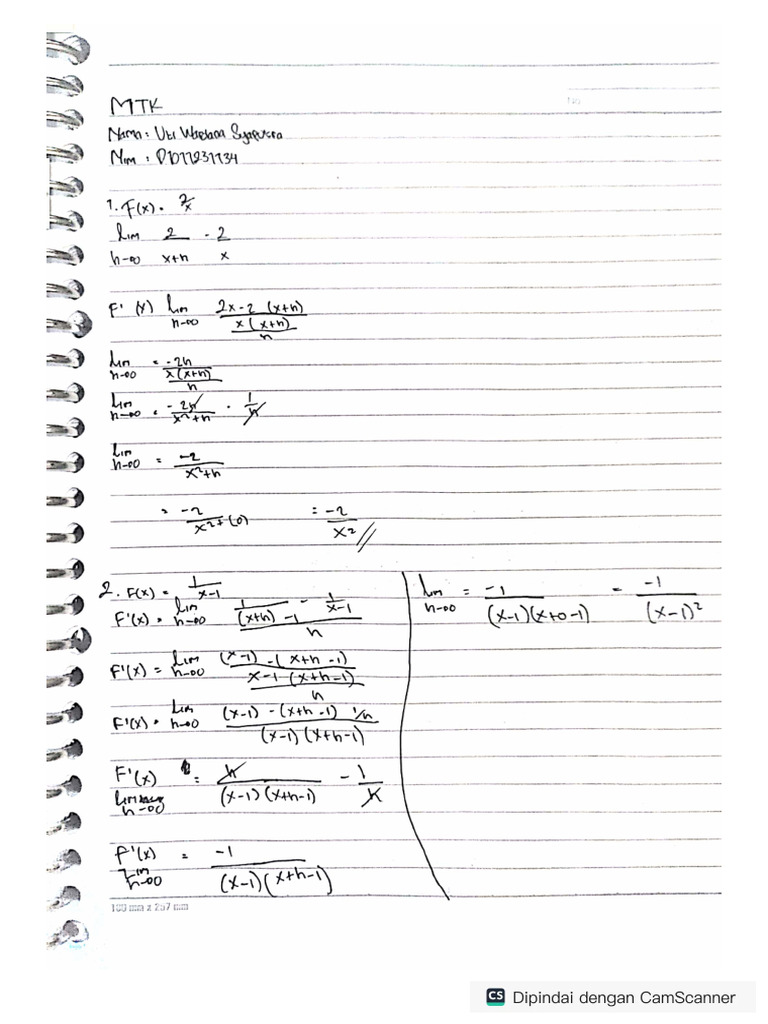 No
MTK
Nama :
Nim :
1. F(x) = 2/x
lim h→0 2/(x+h) - 2/x
F'(x) lim h→0 (2x-2(x+h))/(x(x+h))/h
lim h→0 = -2h/(x(x+h))/h
lim h→0 = -2h/(x²+h) · 1/h
lim h→0 = -2/(x²+h)
= -2/(x²+(0) = -2/x² //
2. F(x) = 1/(x-1)
F'(x) = lim h→0 (1/((x+h)-1) - 1/(x-1))/h
F'(x) = lim h→0 ((x-1)-(x+h-1))/(x-1(x+h-1))/h
F'(x) = lim h→0 (x-1)-(x+h-1) 1/h/((x-1)(x+h-1))
F'(x) lim h→0 = h/((x-1)(x+h-1)) - 1/h
F'(x) lim h→0 = -1/((x-1)(x+h-1))
lim h→0 = -1/((x-1)(x+0-1)) = -1/(x-1)²
CS Dipindai dengan CamScanner